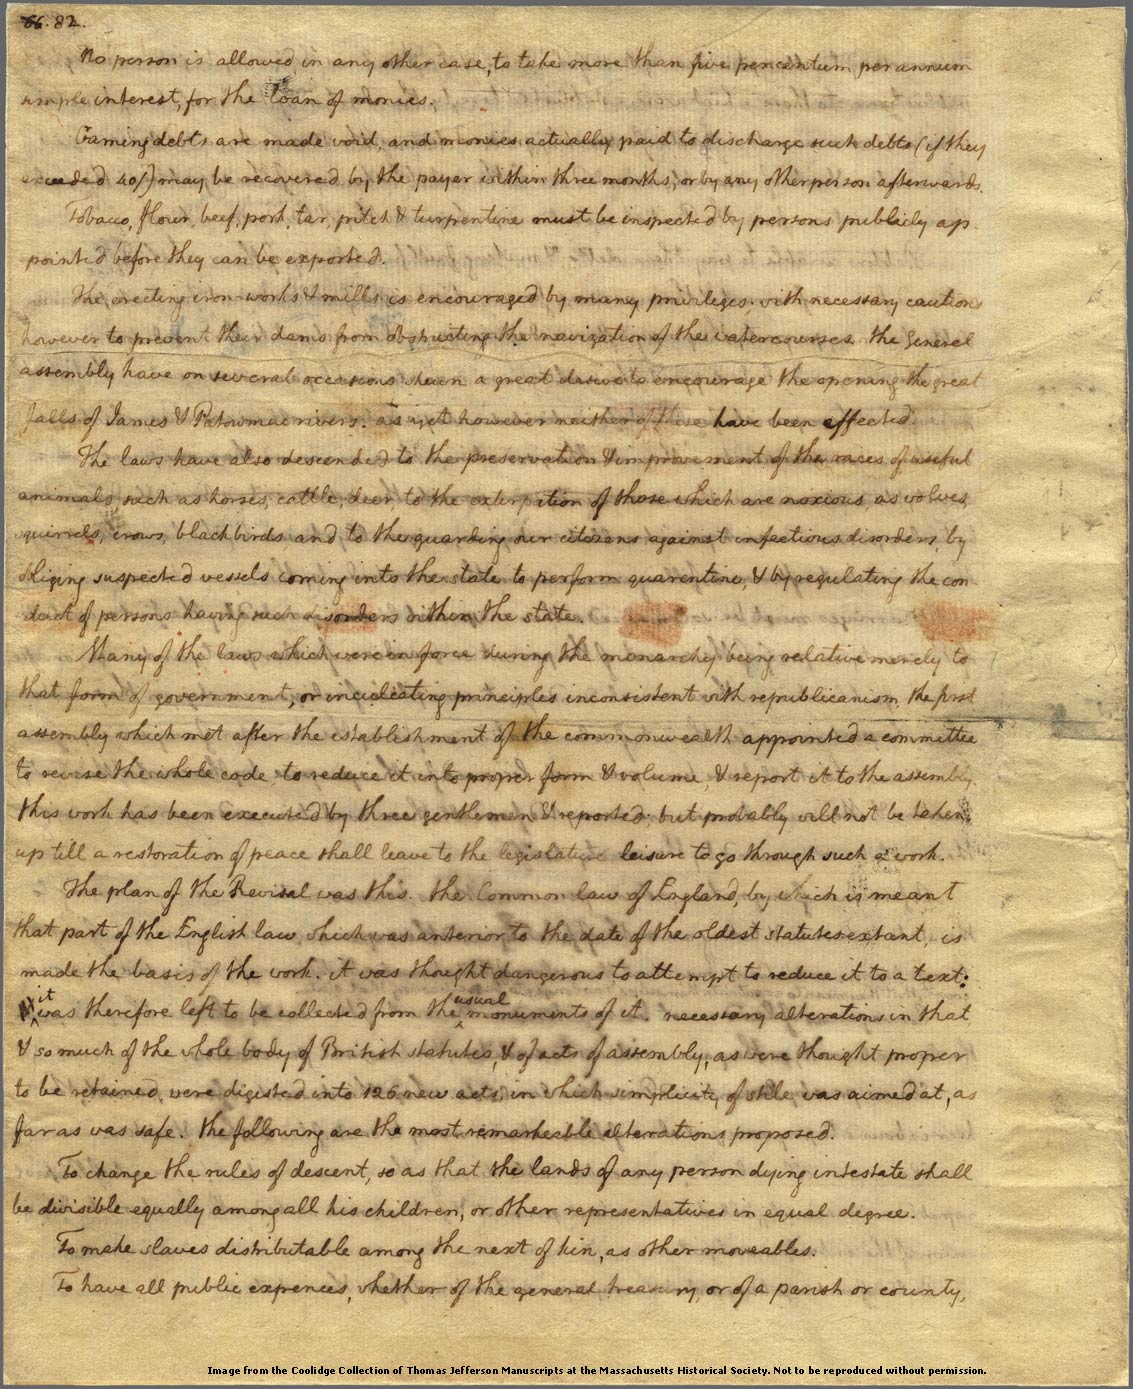 66. 82.
No person is allowed in any other case, to take more than five percentum per annum
simple interest, for the loan of monies.
Gaming debts are made void, and monies actually paid to discharge such debts (if they
exceeded 40/) may be recovered by the payer within three months, or by any other person afterwards.
Tobacco, flour, beef, pork, tar, pitch & turpentine must be inspected by persons publicly ap-
pointed before they can be exported.
The erecting iron-works & mills is encouraged by many privileges; with necessary cautions
however to prevent their dams from obstructing the navigation of the watercourses. the General
assembly have on several occasions shewn a great desire to encourage the opening the great
falls of James & Patowmac rivers. as yet however neither of these have been effected.
The laws have also descended to the preservation & improvement of the races of useful
animals, such as horses, cattle, deer, to the extirpation of those which are noxious, as wolves,
squirrels, crows, blackbirds, and to the guarding our citizens against infectious disorders, by
obliging suspected vessels coming into the state to perform quarentine, & by regulating the con-
duct of persons having such disorders within the state.
Many of the laws which were in force during the monarchy being relative merely to
that form of government, or inculcating principles inconsistent with republicanism, the first
assembly which met after the establishment of the commonwealth appointed a committee
to revise the whole code, to reduce it into proper form & volume, & report it to the assembly.
this work has been executed by three gentlemen & reported; but probably will not be taken
up till a restoration of peace shall leave to the legislature leisure to go through such a work.
The plan of the Revisal was this. the Common law of England, by which is meant
that part of the English law which was anterior to the date of the oldest statutes extant, is
made the basis of the work. it was thought dangerous to attempt to reduce it to a text:
it was therefore left to be collected from the usual monuments of it. necessary alterations in that
& so much of the whole body of British statutes, & of acts of assembly, as were thought proper
to be retained, were digested into 126 new acts, in which simplicity of stile was aimed at, as
far as was safe. the following are the most remarkeable alterations proposed.
To change the rules of descent, so as that the lands of any person dying intestate shall
be divisible equally among all his children, or other representatives in equal degree.
To make slaves distributable among the next of kin, as other moveables.
To have all public expences, whether of the general treasury, or of a parish or county,
Image from the Coolidge Collection of Thomas Jefferson Manuscripts at the Massachusetts Historical Society. Not to be reproduced without permission.